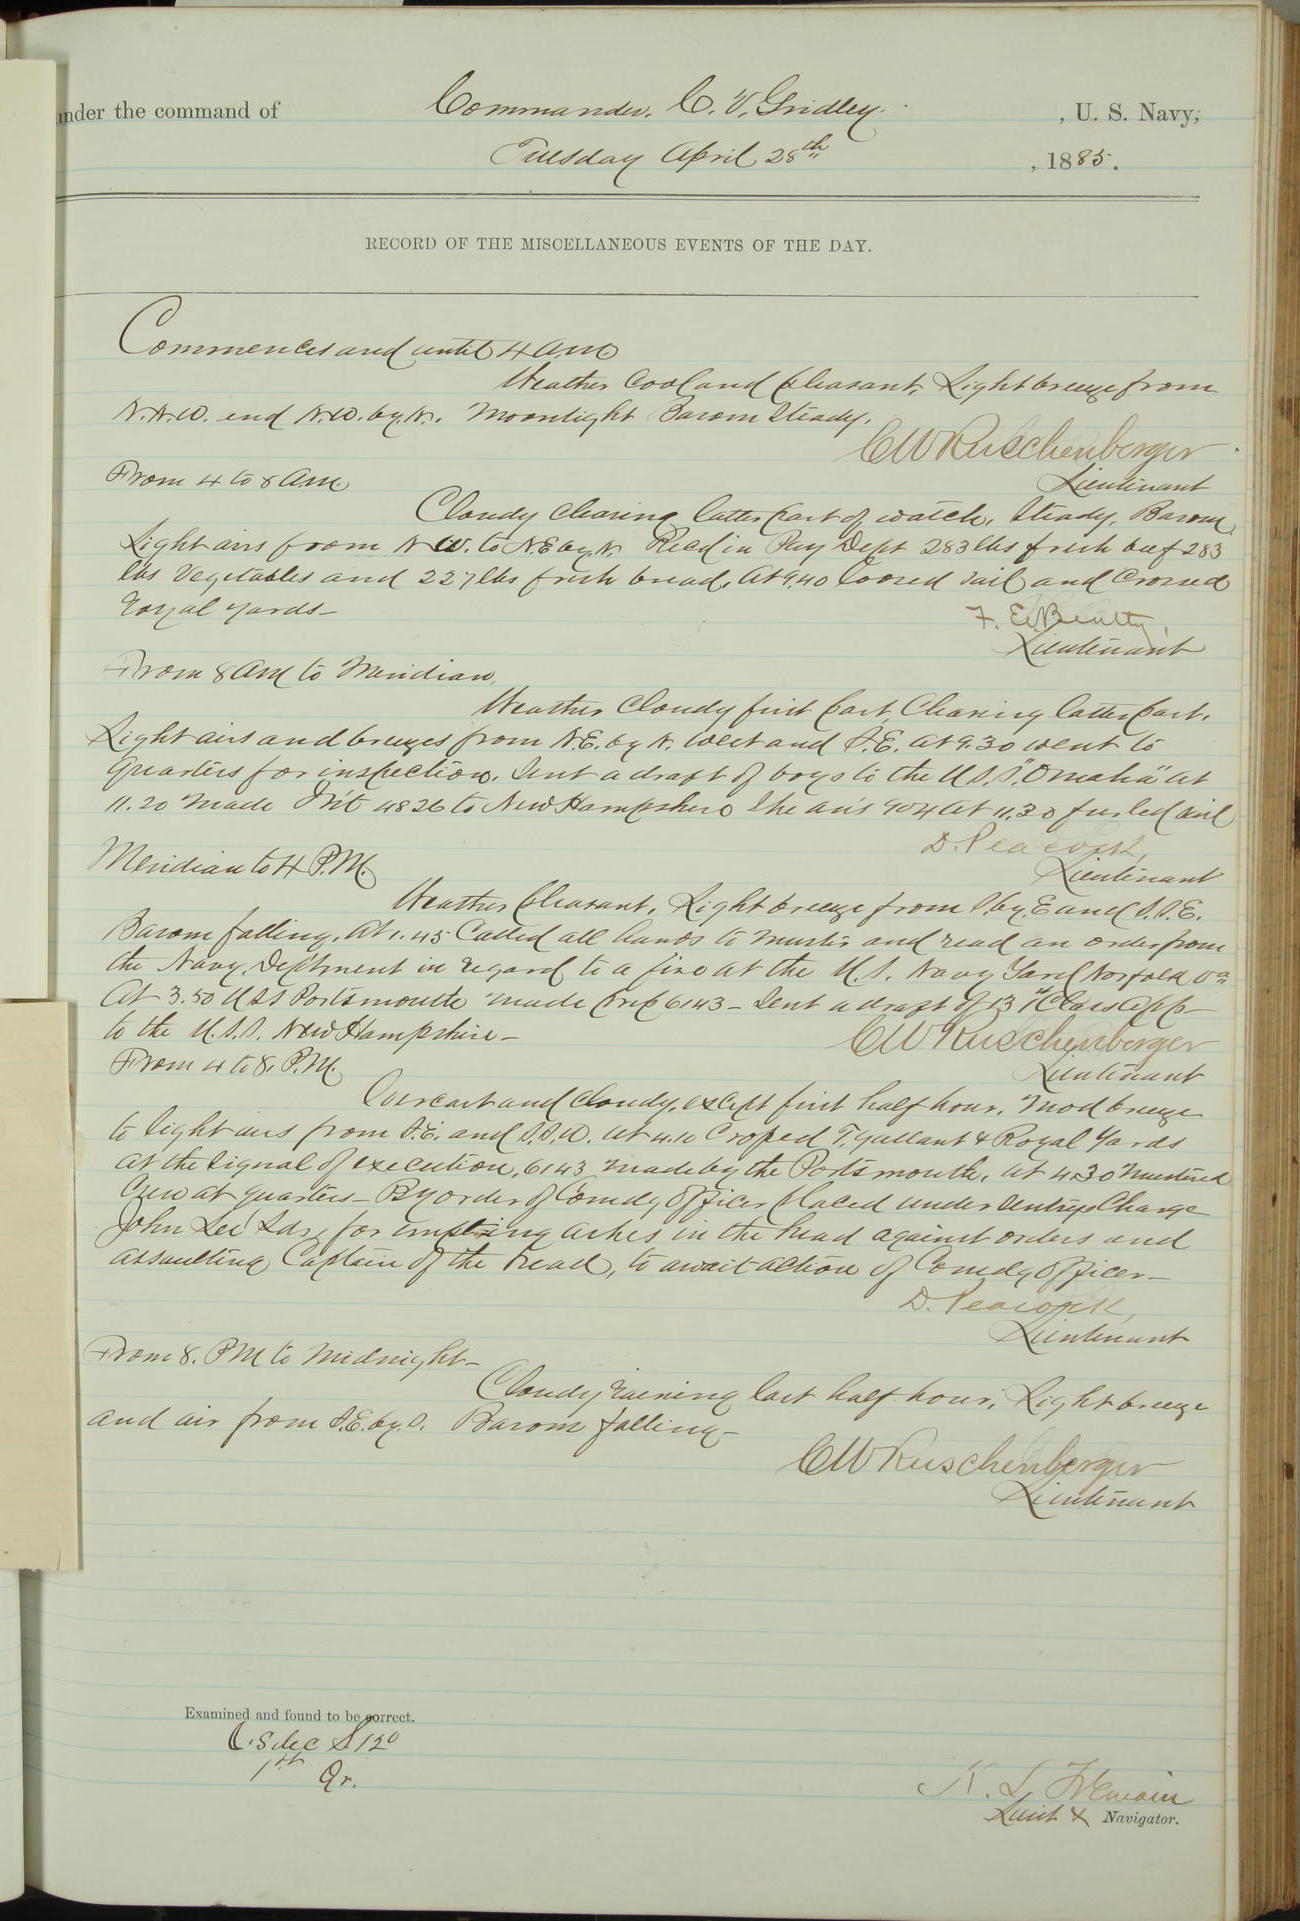 under the command of Commander. C. V. Gridley. , U. S. Navy,
Tuesday April 28th , 1885.
RECORD OF THE MISCELLANEOUS EVENTS OF THE DAY.
Commences and until 4 a.m.
Weather cool and pleasant, Light breeze from
N.N.W. and N.W. by. N. Moonlight Barom Steady.
C W Ruschenberger
Lieutenant
From 4 to 8 A.M.
Cloudy clearing latter part of watch, Steady, Barom
Light airs from N W. to N.E by N Recd in Pay Dept 283 lbs fresh beef 283
lbs Vegetables and 227 lbs fresh bread. At 9.40 loosed sail and crossed
Royal yards—
F. E. Beatty,
Lieutenant
From 8 AM to Meridian.
Weather cloudy first part, Clearing latter part.
Light airs and breezes from N.E. by N. West and S.E. at 9.30 went to
quarters for inspection. Sent a draft of boys to the U.S.S. "Omaha" at
11.20 made Int 4826 to New Hampshire She ans 904 at 11.30 furled sail
D. Peacock,
Lieutenant
Meridian to 4 P.M.
Weather pleasant. Light breeze from S. by. E and S.S.E.
Barom falling. At 1.45 Called all hands to muster and read an order from
the Navy Deptment in regard to a fire at the U.S. Navy Yard Norfolk Va
At 3.50 USS Portsmouth made prep 6143— Sent a draft of 13 Class app—
to the U.S.S. New Hampshire—
C W Ruschenberger
Lieutenant
From 4 to 8, P.M.
Overcast and cloudy, except first half hour. Mod breeze
to light airs from S.E. and S.S.W. at 4.10 Croped T. gallant & Royal Yards
at the signal of execution, 6143 made by the Portsmouth. at 4.30 Mustered
Crew at quarters— By order of Comdg Officer placed under Sentrys Charge
John Lee, Lds, for emptying ashes in the head against orders and
assaulting Captain of the head, to await action of Comdg Officer—
D. Peacock,
Lieutenant
From 8. PM to Midnight—
Cloudy raining last half hour, Light breeze
and air from S.E. by. S. Barom falling—
C W Ruschenberger
Lieutenant
Examined and found to be correct.
1st Qr.
Lieut & Navigator.